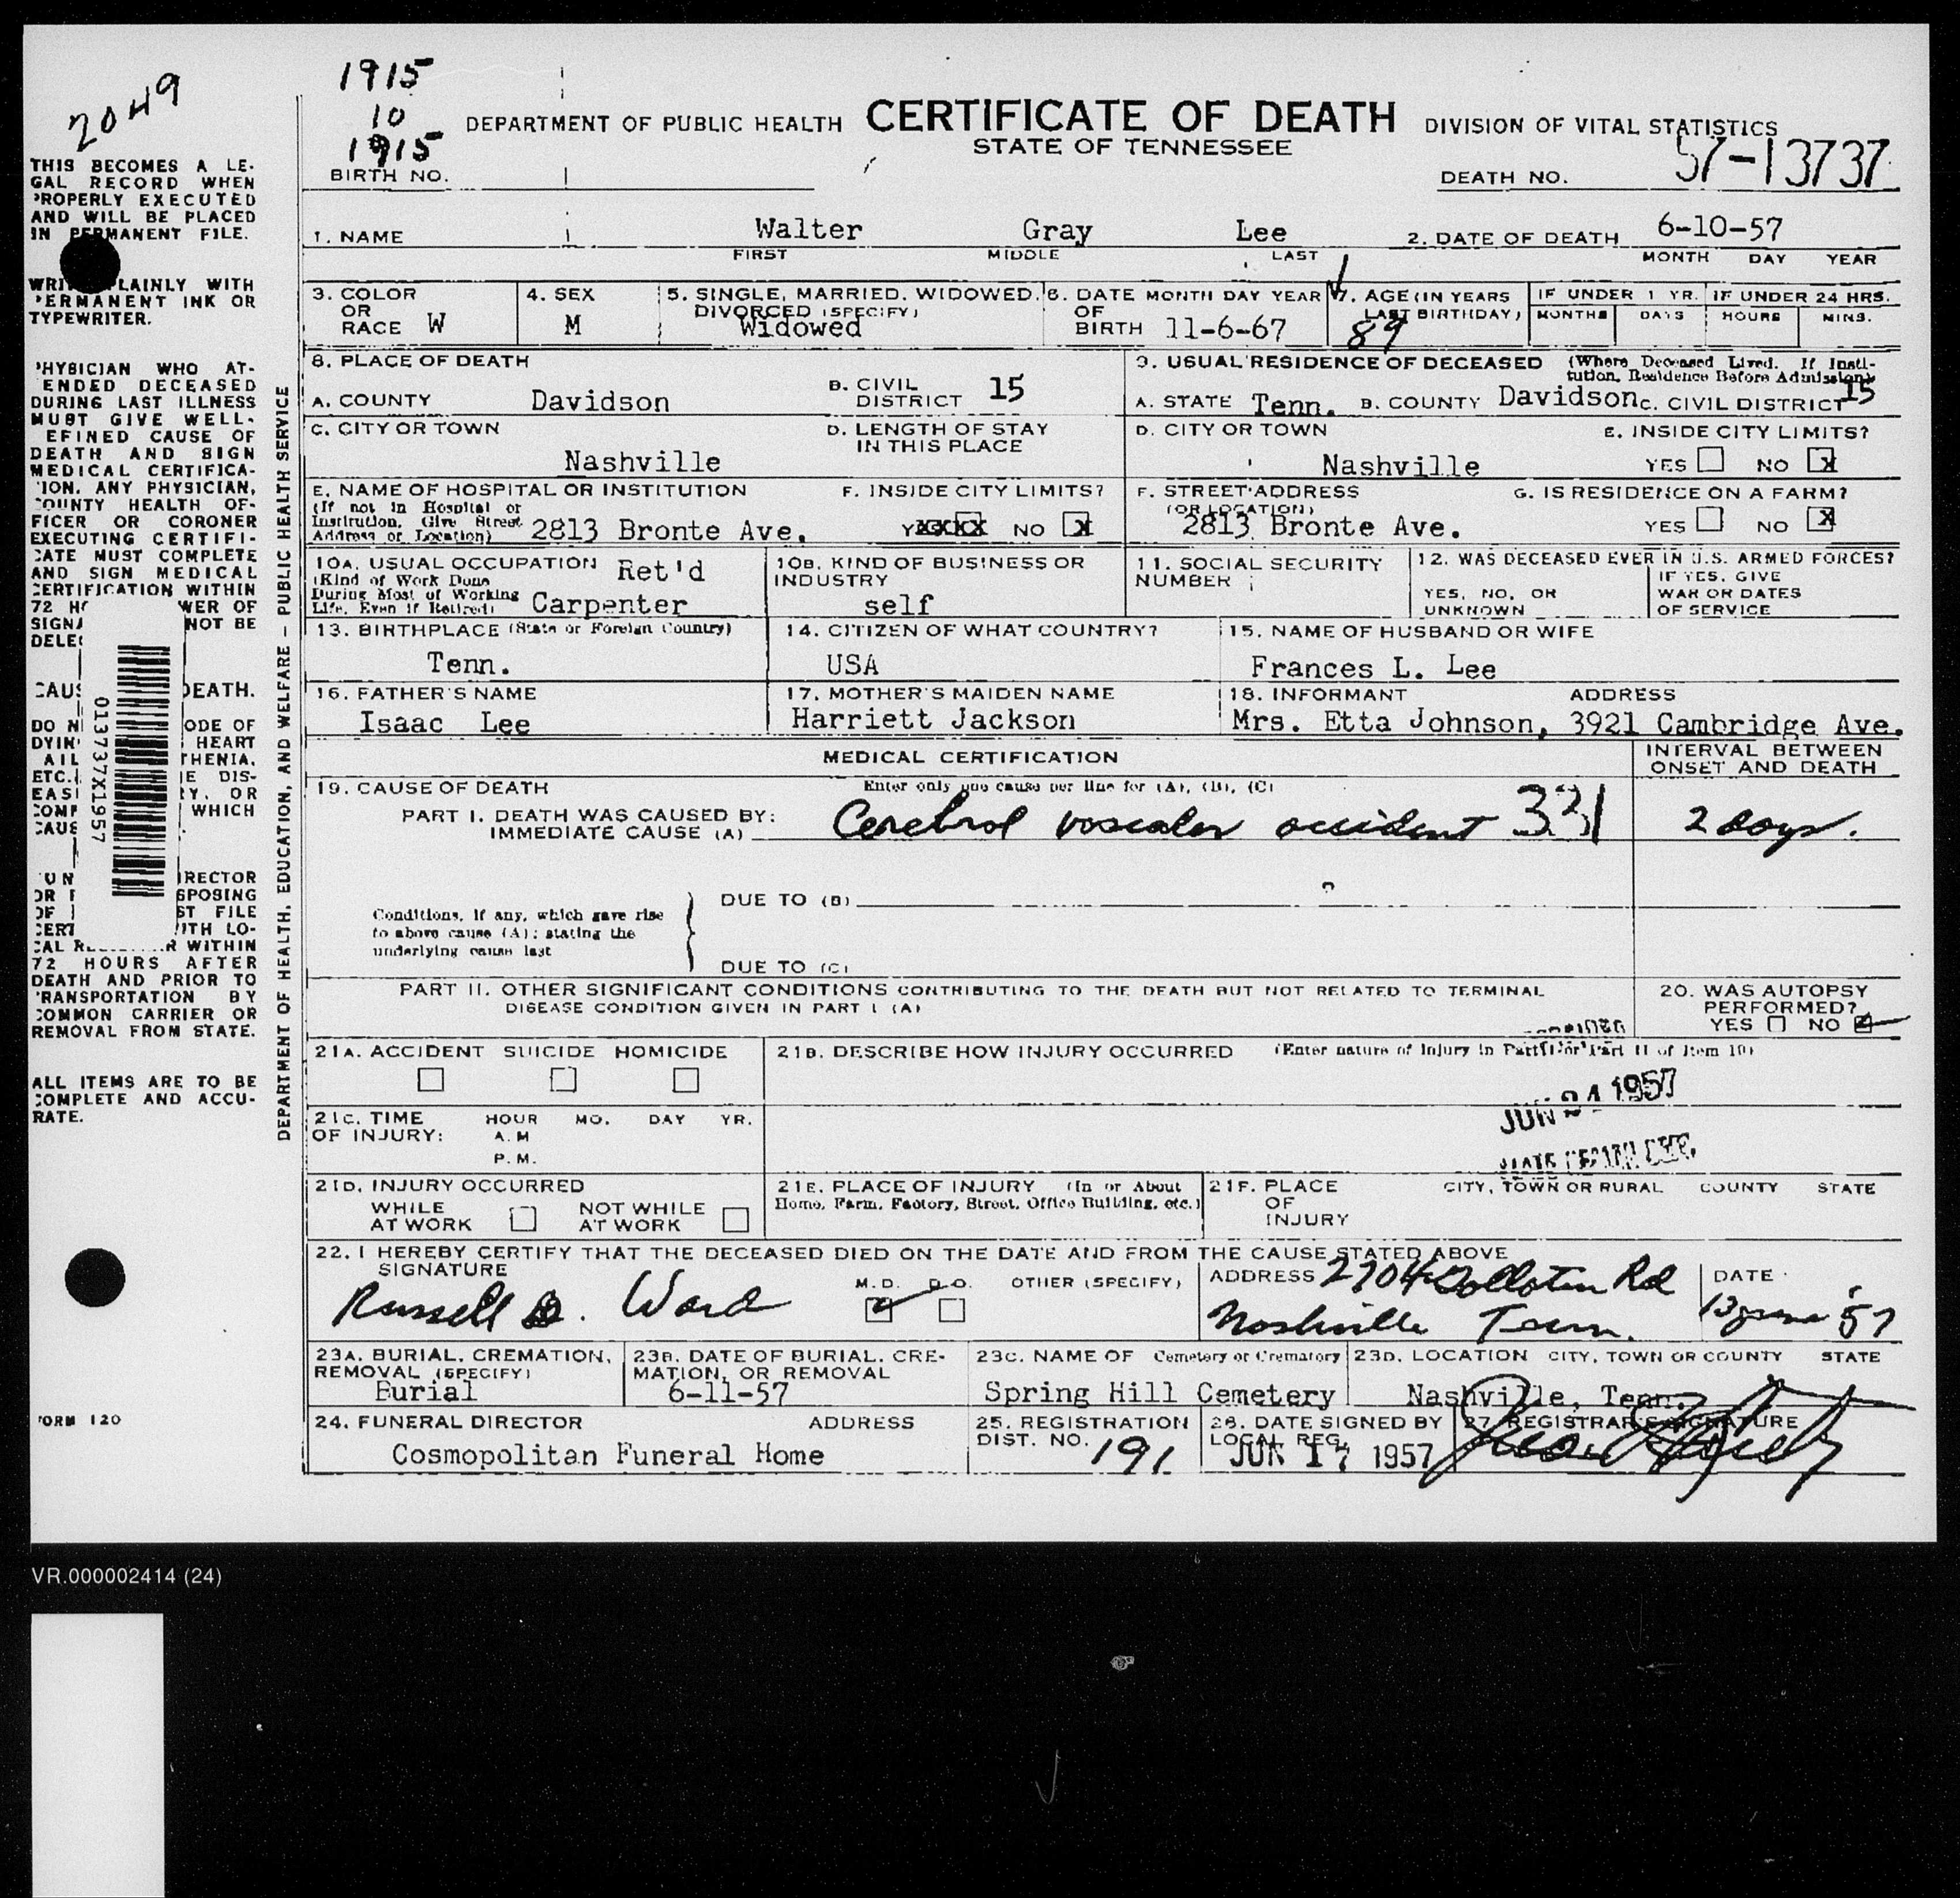 2049
1915
10
1915
BIRTH NO.
DEPARTMENT OF PUBLIC HEALTH CERTIFICATE OF DEATH DIVISION OF VITAL STATISTICS
STATE OF TENNESSEE
DEATH NO. 57-13737
THIS BECOMES A LE-
GAL RECORD WHEN
PROPERLY EXECUTED
AND WILL BE PLACED
IN PERMANENT FILE.
PLAINLY WITH
PERMANENT INK OR
TYPEWRITER.
PHYSICIAN WHO AT-
ENDED DECEASED
DURING LAST ILLNESS
MUST GIVE WELL-
EFINED CAUSE OF
DEATH AND SIGN
MEDICAL CERTIFICA-
ION. ANY PHYSICIAN,
COUNTY HEALTH OF-
FICER OR CORONER
EXECUTING CERTIFI-
CATE MUST COMPLETE
AND SIGN MEDICAL
CERTIFICATION WITHIN
72 WER OF
NOT BE
DEATH.
ODE OF
HEART
THENIA,
DIS-
OR
WHICH
RECTOR
SPOSING
FILE
ITH LO-
WITHIN
72 HOURS AFTER
DEATH AND PRIOR TO
TRANSPORTATION BY
COMMON CARRIER OR
REMOVAL FROM STATE.
ALL ITEMS ARE TO BE
COMPLETE AND ACCU-
RATE.
013737X1957
FORM 120
DEPARTMENT OF HEALTH, EDUCATION, AND WELFARE – PUBLIC HEALTH SERVICE
1. NAME Walter Gray Lee 2. DATE OF DEATH 6-10-57
FIRST MIDDLE LAST MONTH DAY YEAR
3. COLOR OR RACE W
4. SEX M
5. SINGLE, MARRIED, WIDOWED, DIVORCED (SPECIFY) Widowed
6. DATE OF BIRTH MONTH DAY YEAR 11-6-67
7. AGE (IN YEARS LAST BIRTHDAY) 89
IF UNDER 1 YR. MONTHS DAYS
IF UNDER 24 HRS. HOURS MINS.
8. PLACE OF DEATH
A. COUNTY Davidson B. CIVIL DISTRICT 15
9. USUAL RESIDENCE OF DECEASED (Where Deceased Lived. If Insti-
tution, Residence Before Admission)
A. STATE Tenn. B. COUNTY Davidson C. CIVIL DISTRICT 15
C. CITY OR TOWN Nashville D. LENGTH OF STAY IN THIS PLACE
D. CITY OR TOWN Nashville E. INSIDE CITY LIMITS? YES NO X
E. NAME OF HOSPITAL OR INSTITUTION
(If not in Hospital or
Institution, Give Street
Address or Location) 2813 Bronte Ave.
F. INSIDE CITY LIMITS? YXXXX NO X
F. STREET ADDRESS (OR LOCATION) 2813 Bronte Ave.
G. IS RESIDENCE ON A FARM? YES NO X
10A. USUAL OCCUPATION Ret'd
(Kind of Work Done
During Most of Working
Life, Even if Retired) Carpenter
10B. KIND OF BUSINESS OR INDUSTRY self
11. SOCIAL SECURITY NUMBER
12. WAS DECEASED EVER IN U.S. ARMED FORCES?
YES, NO, OR UNKNOWN
IF YES, GIVE WAR OR DATES OF SERVICE
13. BIRTHPLACE (State or Foreign Country) Tenn.
14. CITIZEN OF WHAT COUNTRY? USA
15. NAME OF HUSBAND OR WIFE Frances L. Lee
16. FATHER'S NAME Isaac Lee
17. MOTHER'S MAIDEN NAME Harriett Jackson
18. INFORMANT ADDRESS
Mrs. Etta Johnson, 3921 Cambridge Ave.
MEDICAL CERTIFICATION
INTERVAL BETWEEN
ONSET AND DEATH
19. CAUSE OF DEATH Enter only one cause per line for (A), (B), (C)
PART I. DEATH WAS CAUSED BY:
IMMEDIATE CAUSE (A) Cerebral vascular accident 331 2 days.
DUE TO (B)
Conditions, if any, which gave rise
to above cause (A); stating the
underlying cause last
DUE TO (C)
PART II. OTHER SIGNIFICANT CONDITIONS CONTRIBUTING TO THE DEATH BUT NOT RELATED TO TERMINAL
DISEASE CONDITION GIVEN IN PART I (A)
20. WAS AUTOPSY
PERFORMED?
YES NO
21A. ACCIDENT SUICIDE HOMICIDE
21B. DESCRIBE HOW INJURY OCCURRED (Enter nature of Injury in Part I or Part II of Item 19)
JUN 24 1957
21C. TIME OF INJURY: HOUR MO. DAY YR.
A.M
P.M.
21D. INJURY OCCURRED
WHILE AT WORK NOT WHILE AT WORK
21E. PLACE OF INJURY (In or About
Home, Farm, Factory, Street, Office Building, etc.)
21F. PLACE OF INJURY CITY, TOWN OR RURAL COUNTY STATE
22. I HEREBY CERTIFY THAT THE DECEASED DIED ON THE DATE AND FROM THE CAUSE STATED ABOVE
SIGNATURE Russell D. Ward M.D. D.O. OTHER (SPECIFY)
ADDRESS 2704 Gallatin Rd
Nashville Tenn.
DATE 13 June '57
23A. BURIAL, CREMATION, REMOVAL (SPECIFY) Burial
23B. DATE OF BURIAL, CRE-
MATION, OR REMOVAL 6-11-57
23C. NAME OF Cemetery or Crematory Spring Hill Cemetery
23D. LOCATION CITY, TOWN OR COUNTY STATE Nashville, Tenn.
24. FUNERAL DIRECTOR ADDRESS
Cosmopolitan Funeral Home
25. REGISTRATION DIST. NO. 191
26. DATE SIGNED BY LOCAL REG. JUN 17 1957
27. REGISTRAR'S SIGNATURE
VR.000002414 (24)